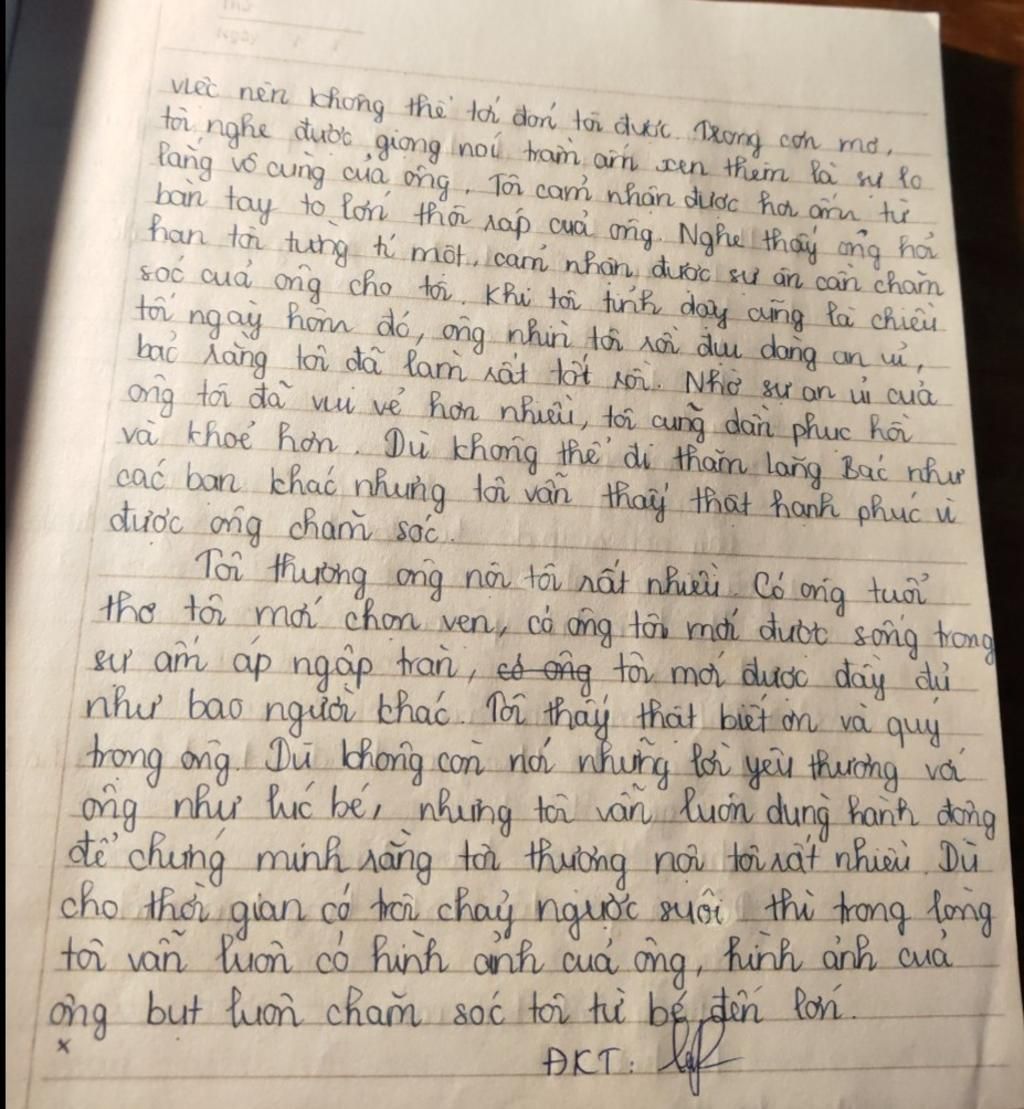 Thứ
Ngày / /
việc nên không thể tới đón tôi được. Trong cơn mơ,
tôi nghe được giọng nói trầm ấm xen thêm là sự lo
lắng vô cùng của ông. Tôi cảm nhận được hơi ấm từ
bàn tay to lớn thôi ráp của ông. Nghe thấy ông hỏi
han tôi từng tí một, cảm nhận được sự ân cần chăm
sóc của ông cho tôi. Khi tôi tỉnh dậy cũng là chiều
tối ngày hôm đó, ông nhìn tôi rồi dịu dàng an ủi,
bảo rằng tôi đã làm rất tốt rồi. Nhờ sự an ủi của
ông tôi đã vui vẻ hơn nhiều, tôi cũng dần phục hồi
và khoẻ hơn. Dù không thể đi thăm lăng Bác như
các bạn khác nhưng tôi vẫn thấy thật hạnh phúc vì
được ông chăm sóc.
Tôi thương ông nội tôi rất nhiều. Có ông tuổi
thơ tôi mới chọn vẹn, có ông tôi mới được sống trong
sự ấm áp ngập tràn, có ông tôi mới được đầy đủ
như bao người khác. Tôi thấy thật biết ơn và quý
trọng ông. Dù không còn nói những lời yêu thương với
ông như lúc bé, nhưng tôi vẫn luôn dùng hành động
để chứng minh rằng tôi thương nội tôi rất nhiều. Dù
cho thời gian có trôi chảy ngược suôi thì trong lòng
tôi vẫn luôn có hình ảnh của ông, hình ảnh của
ông bụt luôn chăm sóc tôi từ bé đến lớn.
x
ĐKT: